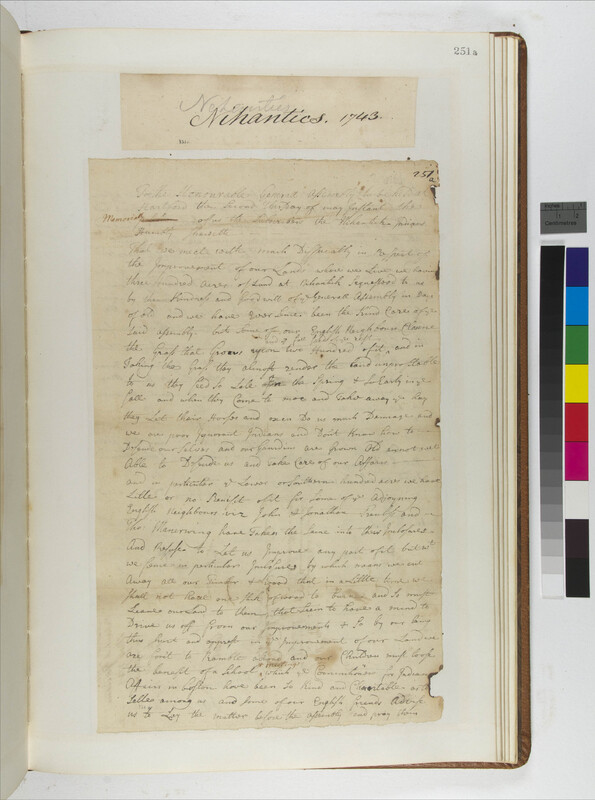 251a
Nihantics
Nihantics. 1743.
251
a
To the Honourable General Assembly
Hartford the Second Day of may Instant the
Memorial of us the Nihantik Indians
Humbly Sheweth
That we meet with much Difficulty in
the Improvement of our Lands where we Live we have
three hundred Acres of Land at Nihantik Sequestred to us
by the Kindness and Goodwill of ye Generall Assembly in Days
of old and we have Ever Since been the Care of ye
Said assembly but Some of our English Neighbours
the Grass that Grows upon two Hundred of it and in
Taking the Grass they almost render the Land unprofitable
to us they feed So Late in the Spring & So Early in ye
fall and when they Come to mow and Take away ye Hay
they Let their Horses and oxen Do us much Damage and
we are poor Ignorant Indians and Dont Know how to
Defend our Selves and our are Grown Old and not well
Able to Defend us and take Care of our Affairs
and in ye Lower or Southern hundred acres we have
Little or no Benifit of it for Some of ye Adjoyning
English Neighbours viz John & Jonathan and
Thos Manwaring have Taken the Same into their Inclosures
And Refuse to Let us Improve any part of it but wt
we fence in perticuler Inclosures by which means we cut
Away all our Timber & wood that in a Little time we
Shall not Have one Stick of wood to burn and So must
Leave our Land to them that Seem to have a mind to
Drive us off from our Improvements & So by our being
thus hurt and opprest in ye Improvement of our Lands
are forc't to Ramble abroad and our Children must loose
the benefit of a School & meetings which ye Commissioners for Indian
Affairs in boston have been So Kind and Charitable as to
Settle among us and Some of our English friends Advise
us to Lay the matter before the assembly and pray them